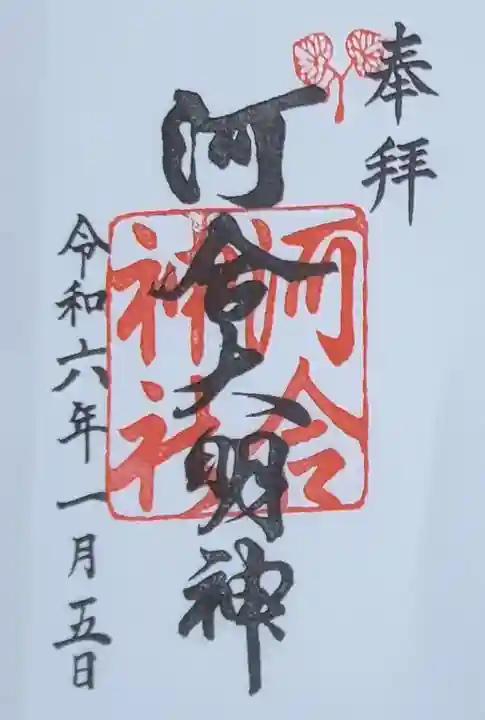 奉拝
河合大明神
河合
神社
令和六年一月五日